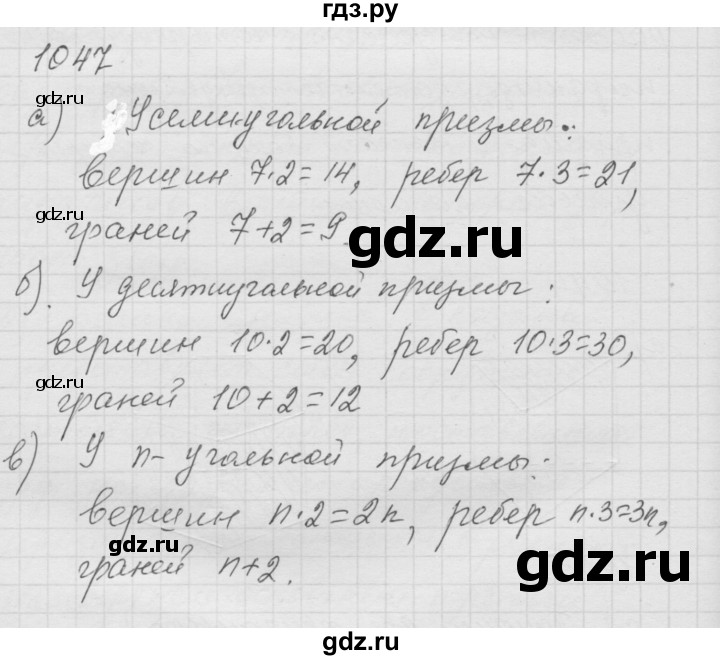 гдз.ру
1047
gdz.ru
а) У семиугольной призмы:
вершин 7·2=14, ребер 7·3=21,
gdz.ru
граней 7+2=9
gdz.ru
б). У десятиугольной призмы:
вершин 10·2=20, ребер 10·3=30,
gdz.ru
граней 10+2=12
в) У n-угольной призмы:
вершин n·2=2n, ребер n·3=3n,
gdz.ru
gdz.ru
граней n+2.
gdz.ru